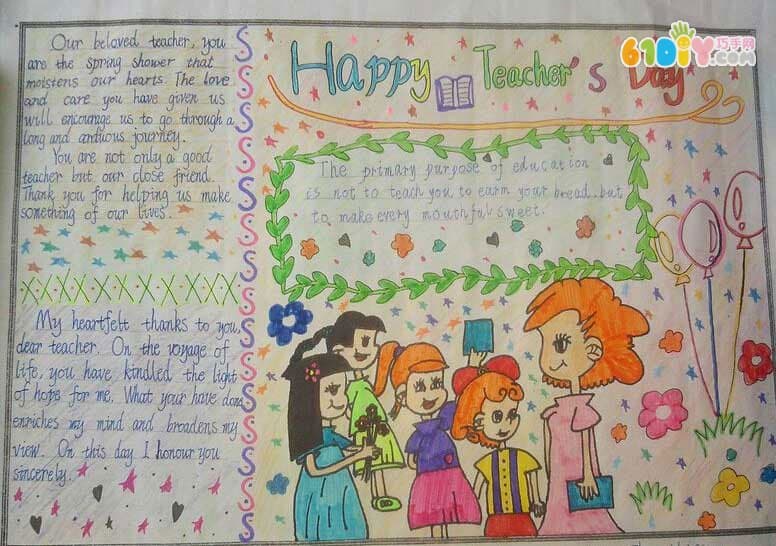 Our beloved teacher, you
are the spring shower that
moistens our hearts. The love
and care you have given us
will encourage us to go through a
long and arduous journey.
You are not only a good
teacher but our close friend.
Thank you for helping us make
something of our lives.
My heartfelt thanks to you,
dear teacher. On the voyage of
life, you have kindled the light
of hope for me. What your have done
enriches my mind and broadens my
view. On this day I honour you
sincerely.
Happy Teacher's Day
The primary purpose of education
is not to teach you to earn your bread, but
to make every mouthful sweet.
610DIY巧手网
.com